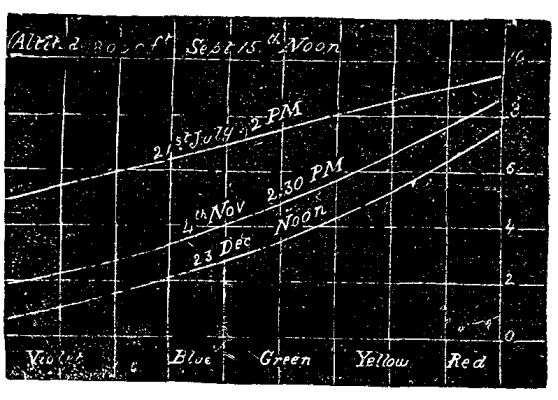 (Altitd 800 ft Sept 15.th Noon
10
21st July. 2 PM
8
4th Nov 2.30 PM
6
23 Dec Noon
4
2
0
Violet Blue Green Yellow Red